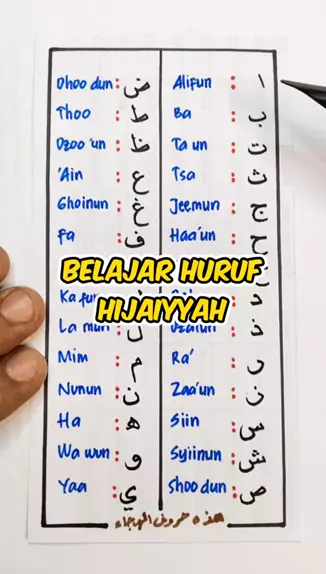 Dhoo dun : ض Alifun : ا
Thoo : ط Ba : ب
Dzoo 'un : ظ Ta un : ت
'Ain : ع Tsa : ث
Ghoinun : غ Jeemun : ج
Fa : ف Haa'un : ح
BELAJAR HURUF
HIJAIYYAH
Ka fun : د
La mun ل : ذ
Mim : م Ra' : ر
Nunun : ن Zaa'un : ز
Ha : ه Siin : س
Wa wun : و Syiinun : ش
Yaa : ي Shoo dun : ص
هذه حروف الهجاء